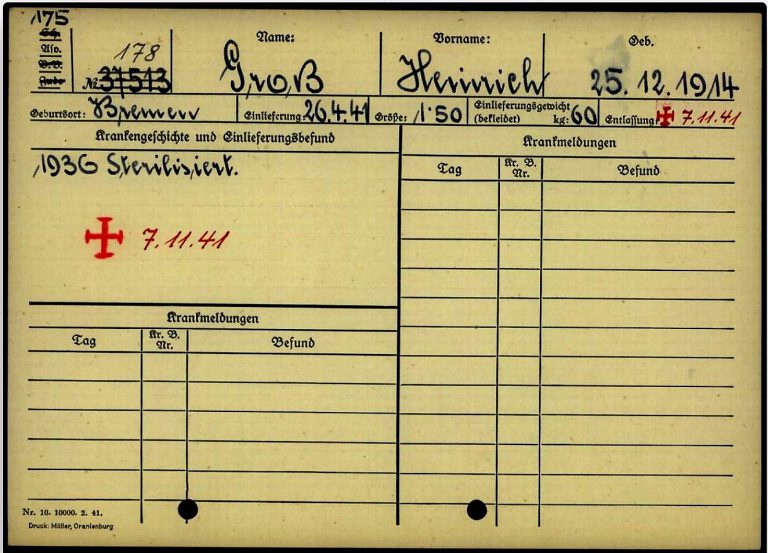 175
Sch.
Aso.
B.V.
Jude
178
№ 37513
Name:
Groß
Vorname:
Heinrich
Geb.
25.12.1914
Geburtsort: Bremen
Einlieferung 26.4.41
Größe: 1.50
Einlieferungsgewicht
(bekleidet) kg: 60
Entlassung 7.11.41
Krankengeschichte und Einlieferungsbefund
1936 Sterilisiert.
7.11.41
Krankmeldungen
Tag
Kr. B.
Nr.
Befund
Krankmeldungen
Tag
Kr. B.
Nr.
Befund
Nr. 10. 10000. 2. 41.
Druck: Möller, Oranienburg